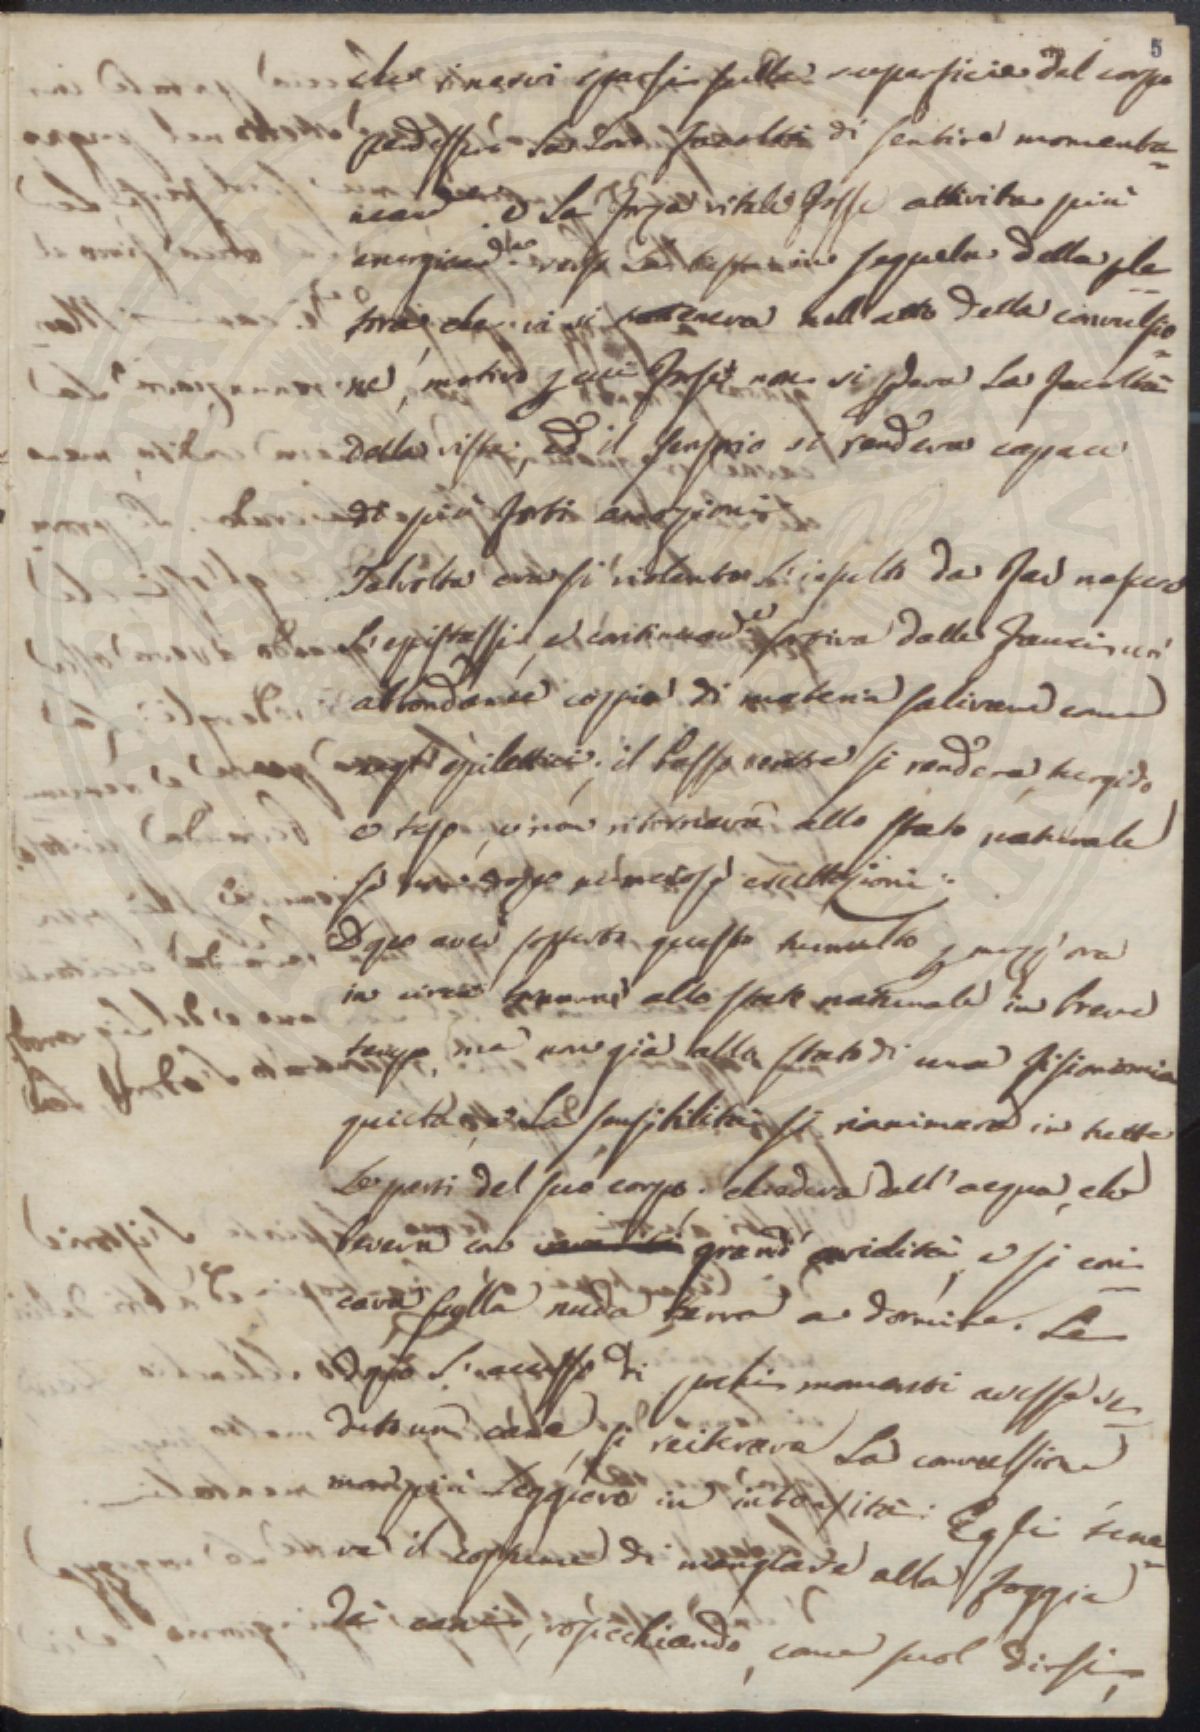 5
che i nervi sparsi sulla superficie del corpo
perdessero la loro facoltà di sentire momenta-
nea.te e la forza vitale fosse attivita più
energica.te verso la testa in sequela della ple-
tora, che vi si nell'atto della convulsio-
ne, motivo p cui forse non si perdeva la facoltà
della vista, ed il sensorio si rendeva capace
di più forti emozioni
Talvolta era sì violento l'insulto da far nascere
l'epistassi, e continuam.te sortiva dalle fauci un'
abbondante coppia di materia salivare come
negl'epilettici; il basso ventre si rendeva turgido
e teso, e non ritornava allo stato naturale
se non dopo numerose eruttazioni.
Dopo aver sofferto questo tumulto p mezz'ora
in circa allo stato naturale in breve
tempo, ma non già allo stato di una fisionomia
quieta, e la sensibilità si rianimava in tutte
le parti del suo corpo. chiedeva dell'acqua, che
beveva con grand'avidità, e si cori-
cava sulla nuda terra a dormire. Se
dopo l'accesso di pochi momenti avesse ve-
duto un cane, si reiterava la convulsione
ma più leggiera in intensità. Egli tene-
va il costume di mangiare alla foggia
de' cani, rosecchiando, come suol dirsi,